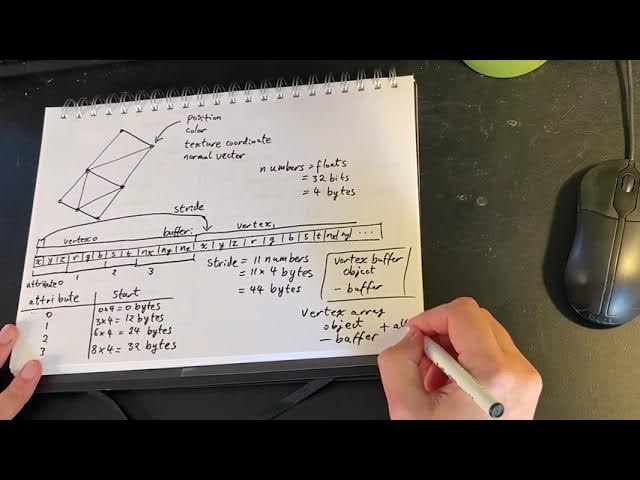 position
color
texture coordinate
normal vector
numbers = floats
= 32 bits
= 4 bytes
stride
vertex 0
buffer:
vertex 1
x y z r g b s t nx ny nz x y z r g b s t nx ny ...
attribute 0 1 2 3
stride = 11 numbers
= 11 x 4 bytes
= 44 bytes
vertex buffer
object
- buffer
attribute start
0 0x4 = 0 bytes
1 3x4 = 12 bytes
2 6x4 = 24 bytes
3 8x4 = 32 bytes
vertex array
object + al
- buffer